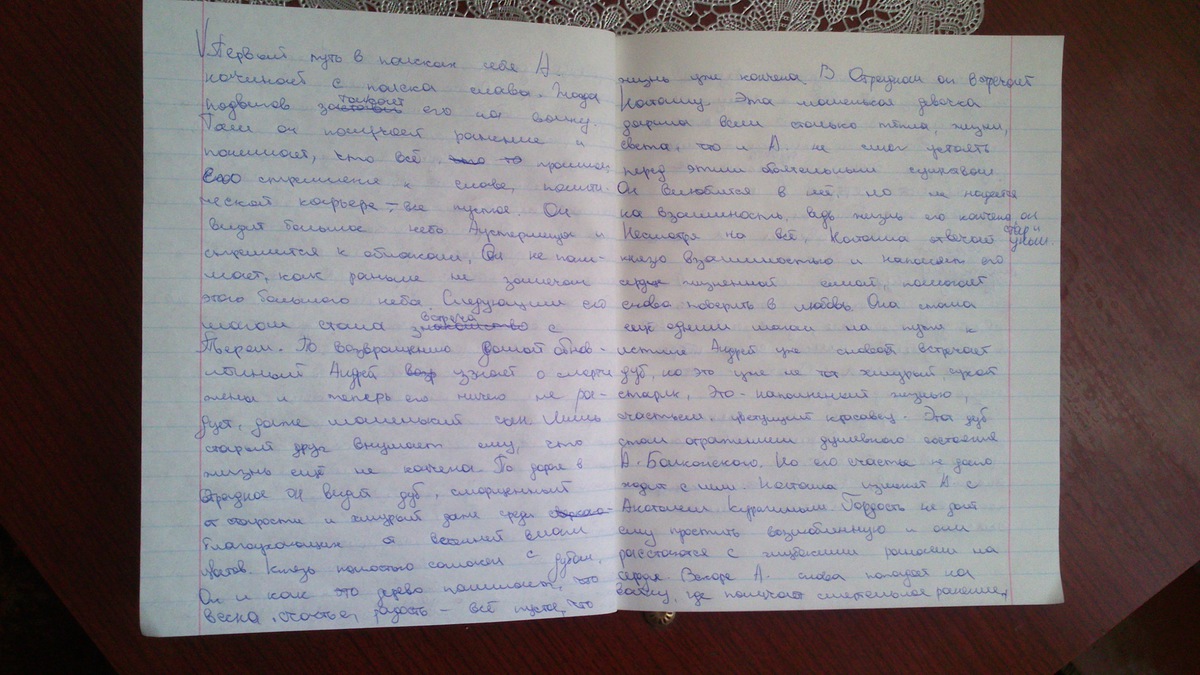 Первый путь в поисках себя А.
начинает с поиска славы. Жажда
подвигов толкает его на войну.
Там он получает ранение и
понимает, что всё прошлое:
его стремление к славе, полити-
ческой карьере – все пустое. Он
видит большое небо Аустерлица и
стремится к облакам, Он не пони-
мает, как раньше не замечал
этого большого неба. Следующим его
шагом стала встреча с
Пьером. По возвращению домой обнов-
лённый Андрей узнает о смерти
жены и теперь его ничего не ра-
дует, даже маленький сын. Лишь
старый друг внушает ему, что
жизнь ещё не кончена. По дороге в
Отрадное он видит дуб, сморщенный
от старости и хмурый даже среди
благоухающих я весенней
Князь полностью согласен с дубом.
Он и как это дерево понимает, что
весна, счастье, радость – всё пустое, что
жизнь уже кончена В Отрадном он встречает
Наташу. Эта маленькая девочка
дарила всем столько тепла, жизни,
света, что и А. не смог устоять
перед этим обаятельным
Он влюбился в неё, но не надеется
на взаимность, ведь жизнь его кончена, он
стар и уныл.
Несмотря на всё, Наташа отвечает
князю взаимностью и наполняет его
сердце жизненной силой, помогает
снова поверить в любовь. Она стала
ещё одним шагом на пути к
истине Андрей уже снова встречает
дуб, но это уже не тот хмурый, сухой
старик, Это – наполненный жизнью,
счастьем, цветущий красавец. Этот дуб
стал отражением душевного состояния
А. Болконского. Но его счастье не долго
ходит с ним. Наташа изменяет А. с
Анатолем Курагиным Гордость не даёт
ему простить возлюбленную и они
расстаются с глубокими ранами на
сердце Вскоре А. снова попадает на
войну, где получает смертельное ранение,